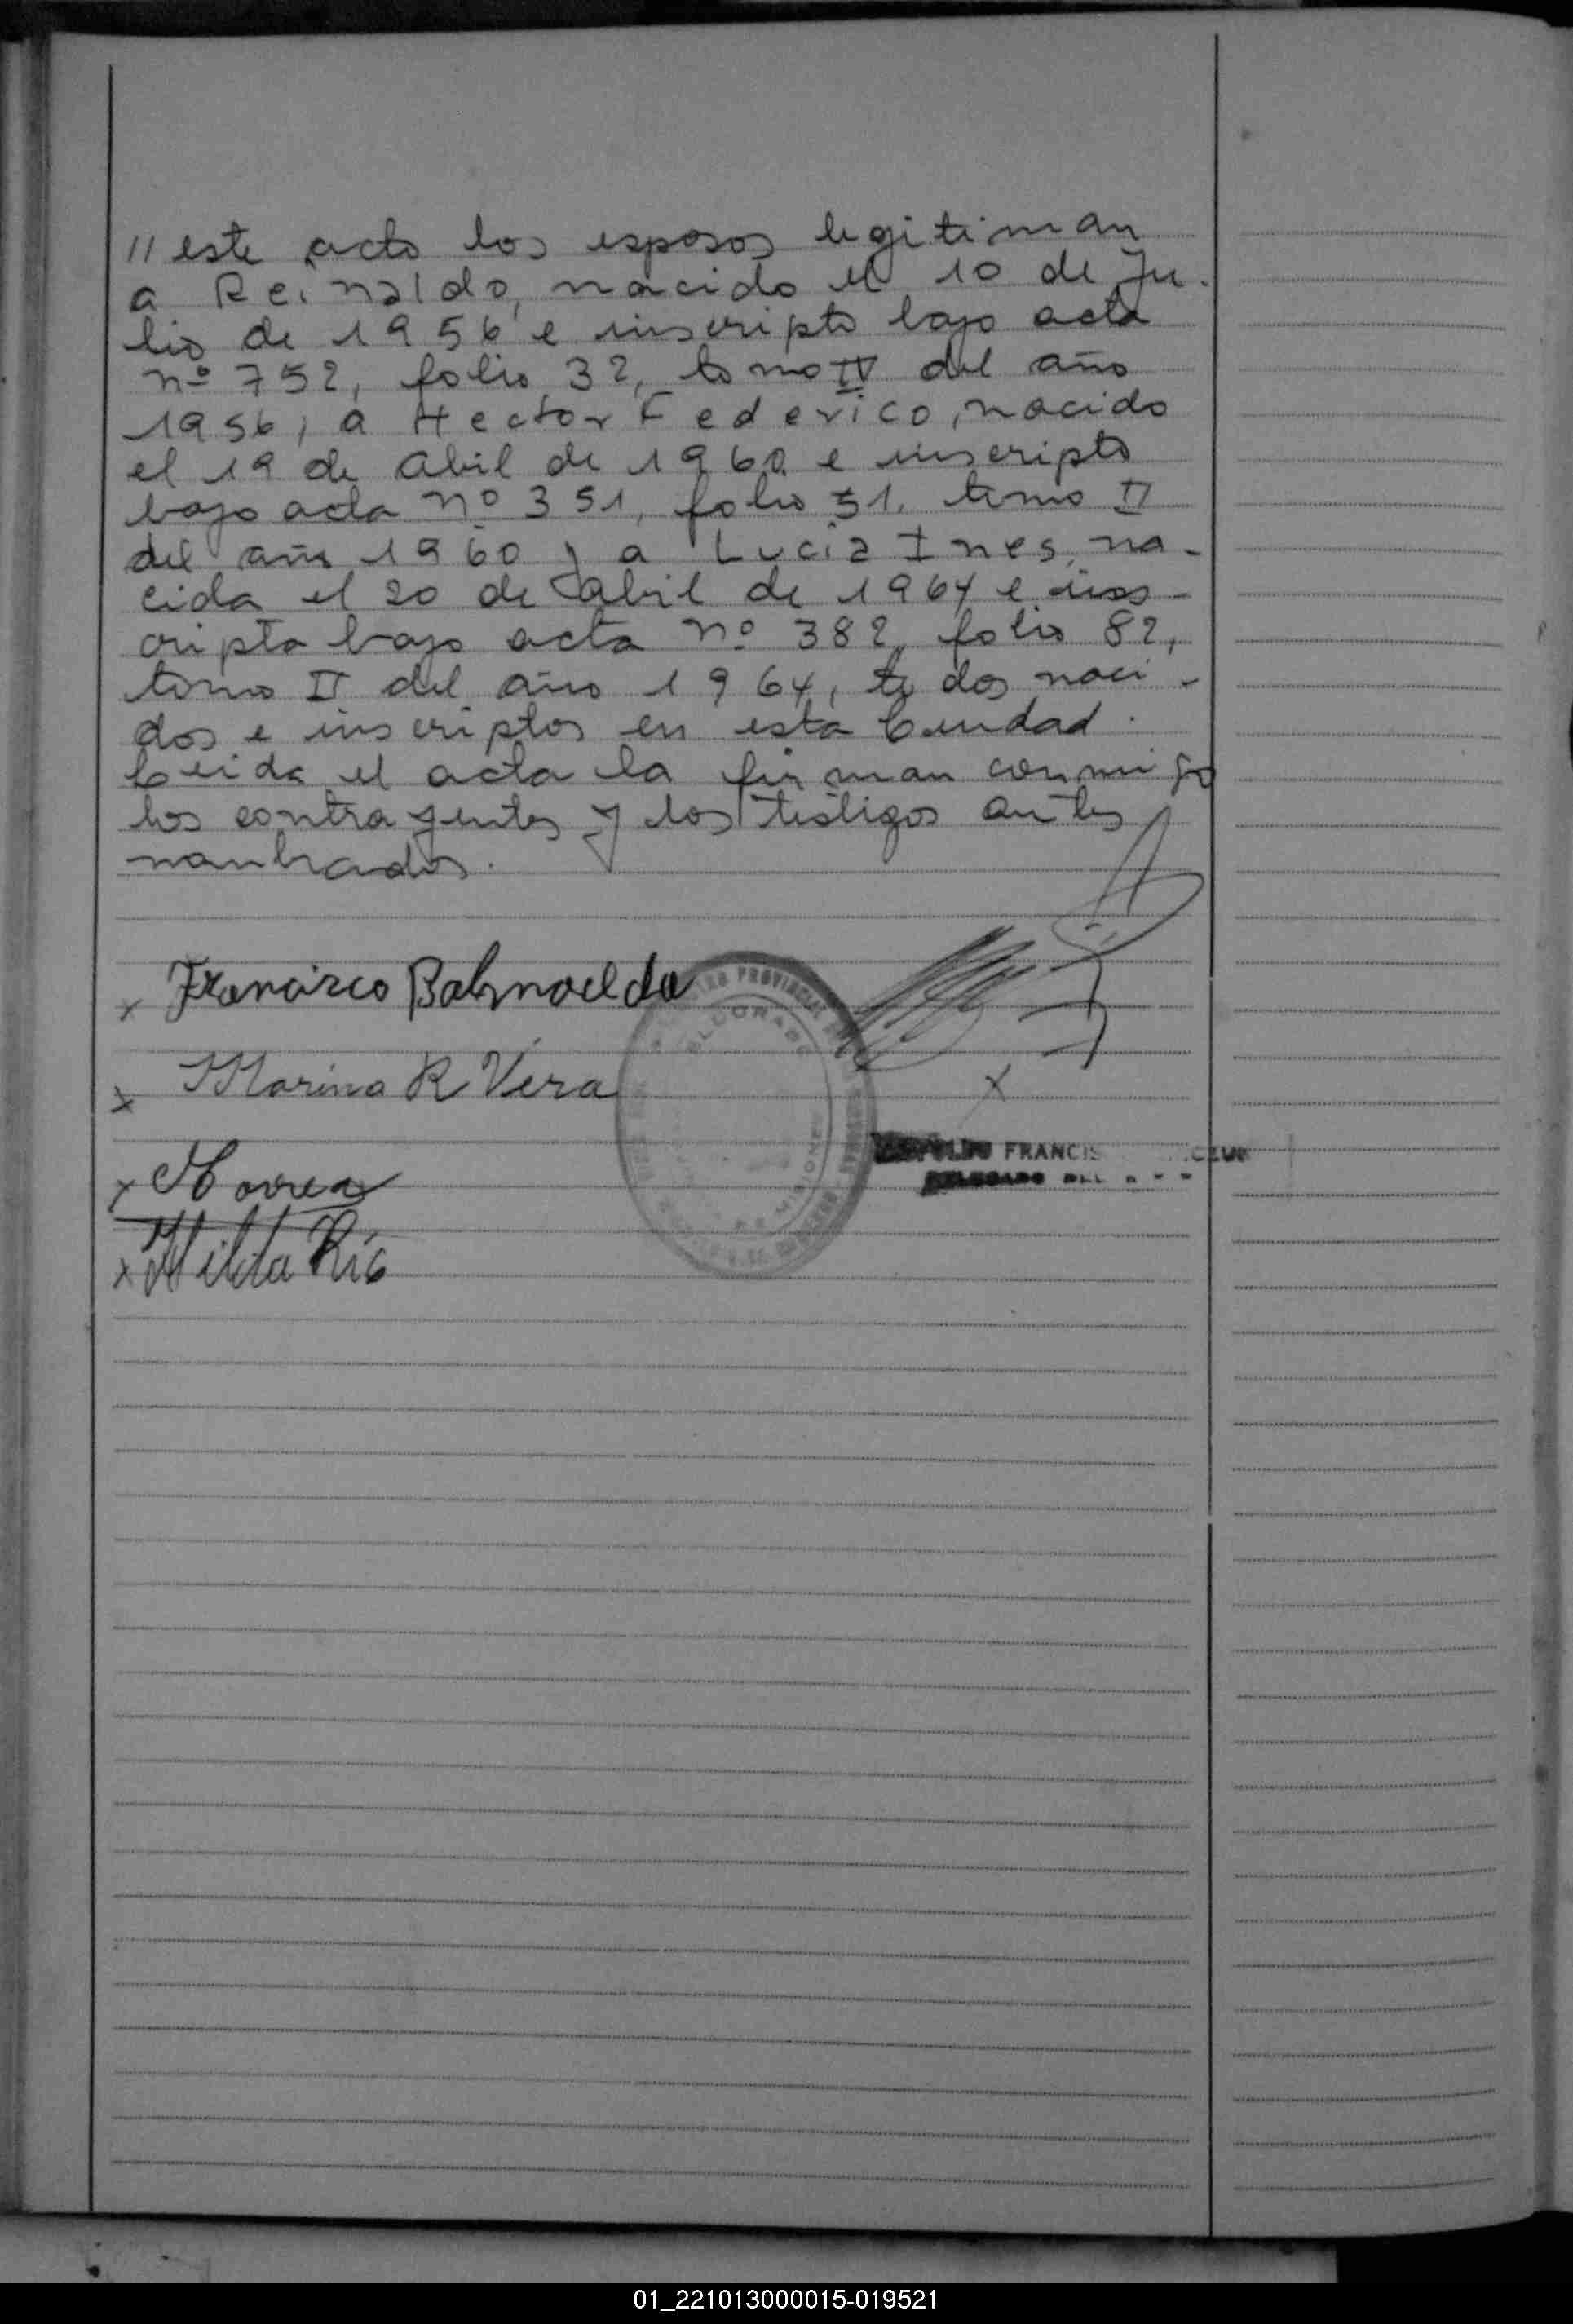 // este acto los esposos legitiman
a Reinaldo, nacido el 10 de Ju-
lio de 1956 e inscripto bajo acta
nº 752, folio 32, tomo IV del año
1956; a Hector Federico, nacido
el 19 de abril de 1960 e inscripto
bajo acta nº 351, folio 51, tomo II
del año 1960 y a Lucia Ines, na-
cida el 20 de abril de 1964 e ins-
cripta bajo acta nº 382, folio 82,
tomo II del año 1964, todos naci-
dos e inscriptos en esta Ciudad.
Leida el acta la firman conmigo
los contrayentes y los testigos antes
nombrados.
x Francisco Balmaceda
x Marina R Vera
x
x Hilda Río
PROVINCIAL
ELDORADO
MISIONES
x
FRANCIS
DELEGADO DEL
01_221013000015-019521